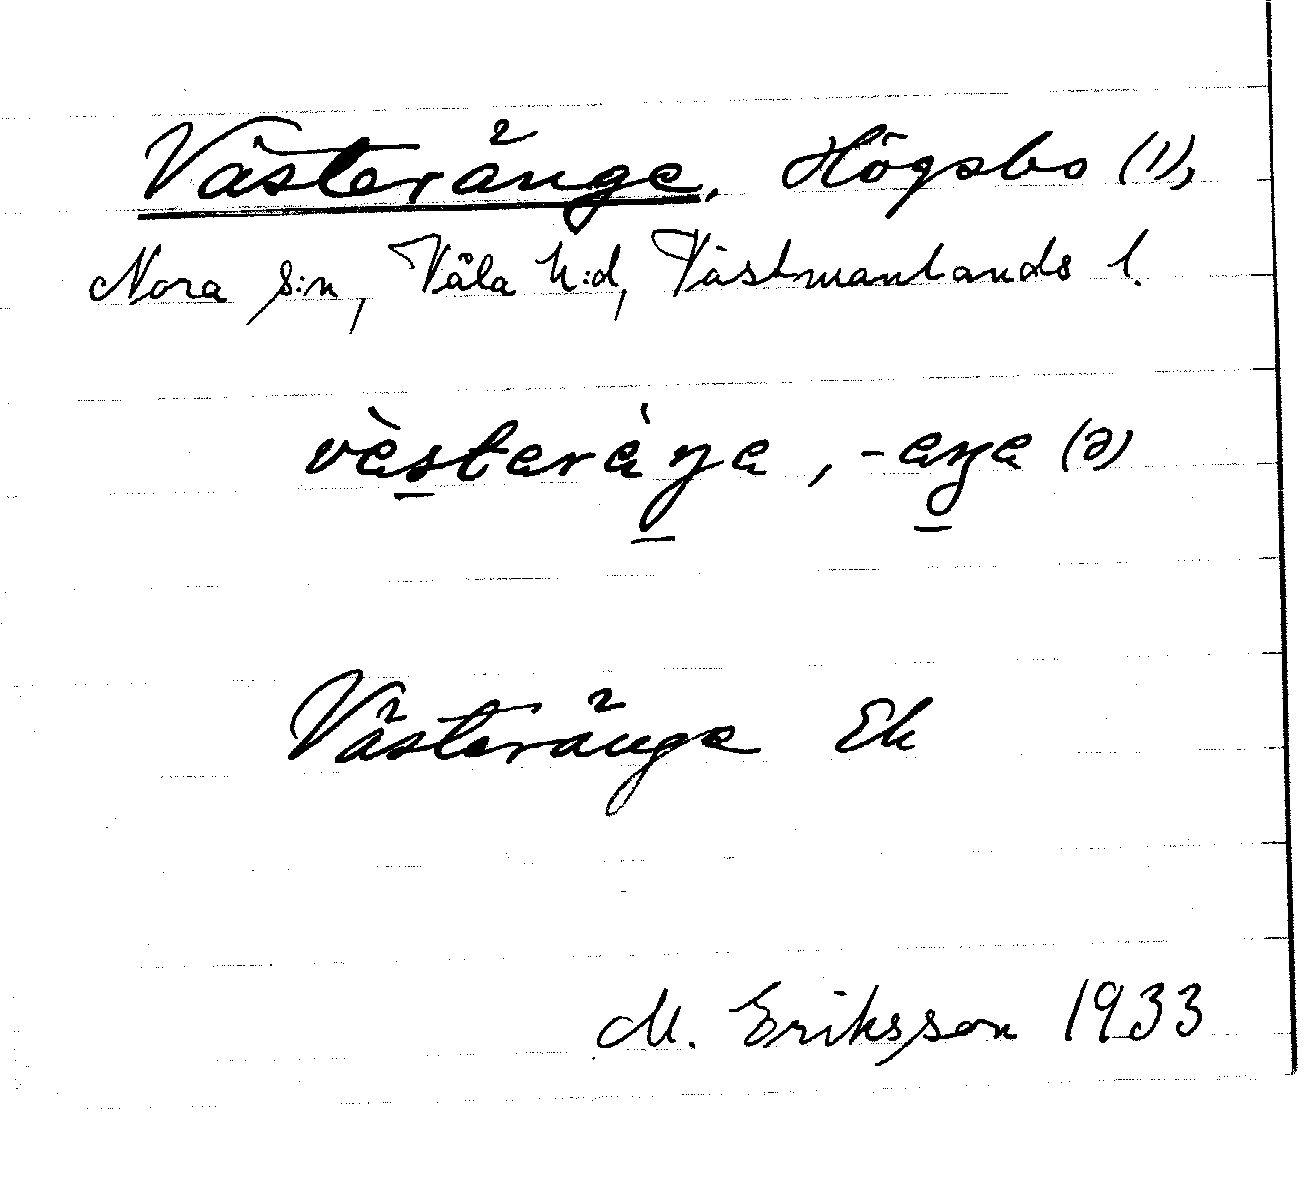 Västeränge, Högsbo (1),
Nora s:n, Våla h:d, Västmanlands l.
vѐsteràŋe, -aŋe (ə)
Västeränge Ek
M. Eriksson 1933